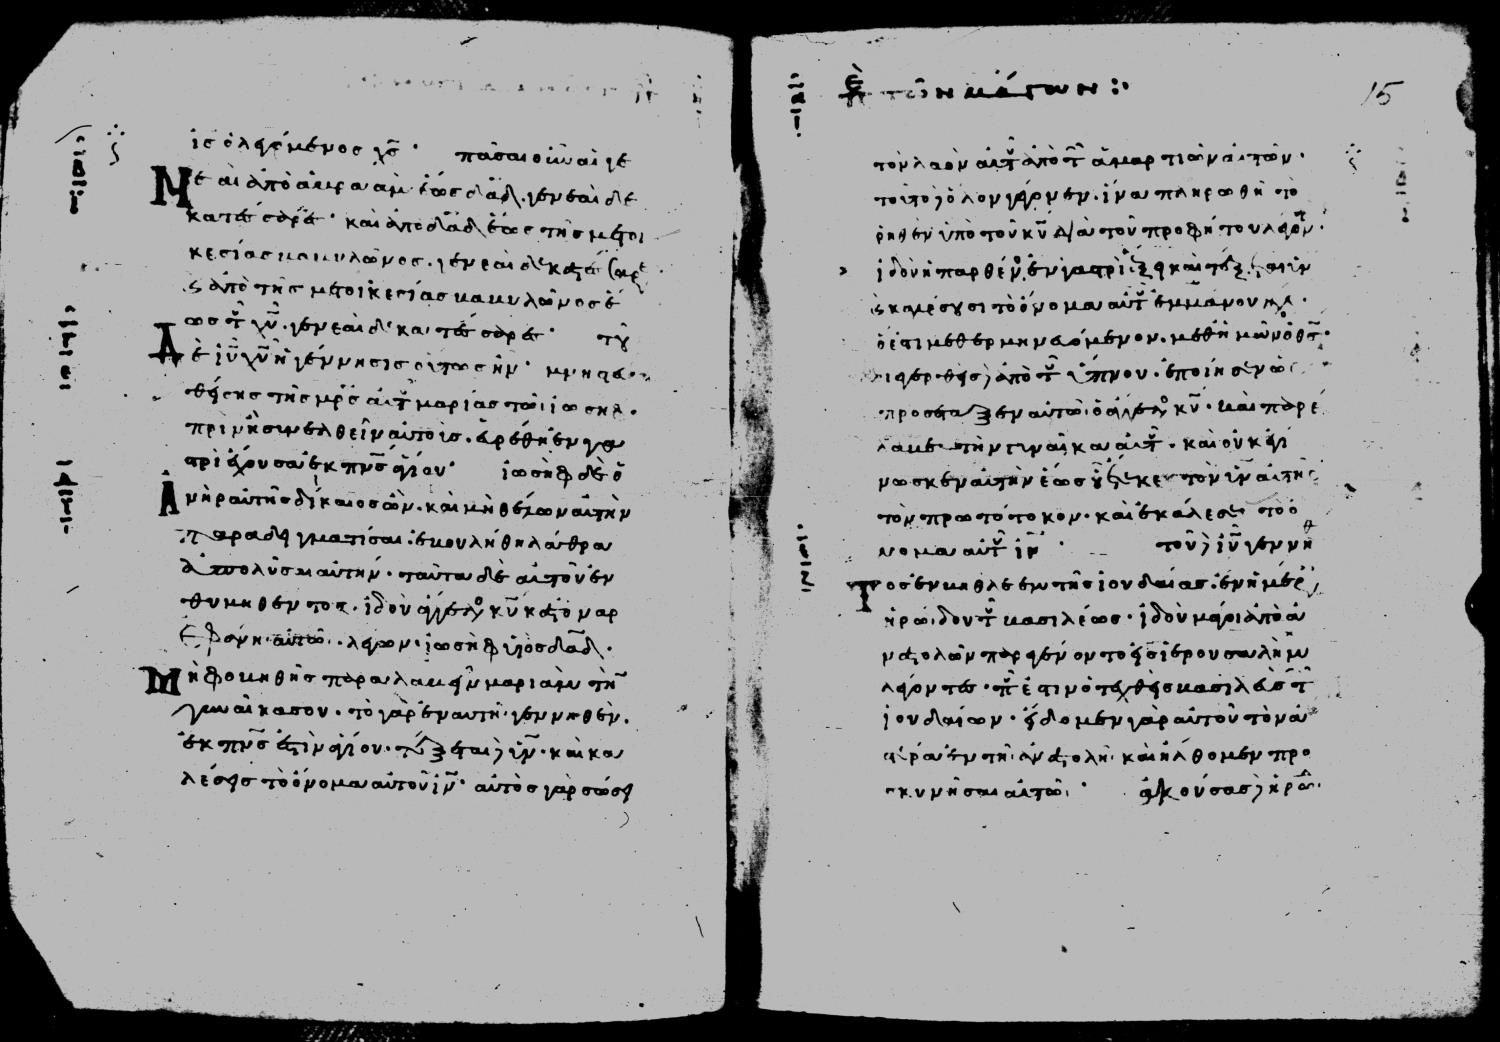 ις ὁ λεγόμενος χ̅ς̅ · πᾶσαι οὖν αἱ γε
νε αι ἀπὸ ἀβρααμ ἕως δα̅δ̅ · γενεαὶ δε
κατέσσαρες · καὶ ἀπὸ δα̅δ̅ ἕως τῆς μετοι
κεσίας βαβυλῶνος · γενεαὶ δεκατέσσαρες
ς ἀπὸ τῆς μετοικεσίας βαβυλῶνος ἕ
ως τοῦ χ̅υ̅ · γενεαὶ δεκατέσσαρες · τοῦ
δὲ ι̅υ̅ χ̅υ̅ ἡ γέννησις οὕτως ἦν · μνηστευ
θείσης τῆς μ̅ρ̅ς̅ αὐτοῦ μαρίας τῶ ἰωσηφ ·
πρὶν ἢ συνελθεῖν αὐτοὺς · εὑρέθη ἐν γα
στρὶ ἔχουσα ἐκ π̅ν̅ς̅ ἁγίου · ἰωσὴφ δὲ ὁ
ἀνὴρ αὐτῆς δίκαιος ὢν · καὶ μὴ θέλων αὐτὴν
παραδειγματίσαι · ἐβουλήθη λάθρα
ἀπολῦσαι αὐτήν · ταῦτα δὲ αὐτοῦ ἐν
θυμηθέντος · ἰδοὺ ἄγγελος κ̅υ̅ κατ ὄναρ
ἐφάνη αὐτῶ · λέγων · ἰωσὴφ υἱὸς δα̅δ̅ ·
μὴ φοβηθῆς παραλαβεῖν μαριὰμ τὴν
γυναῖκα σου · τὸ γὰρ ἐν αυτῆ γεννηθὲν ·
ἐκ π̅ν̅ς̅ ἐστὶν ἁγίου · τέξεται δὲ υ̅ν̅ · καὶ κα
λέσεις τὸ ὄνομα αὐτοῦ ι̅ν̅ · αὐτὸς γὰρ σώσει
15
τὸν λαὸν αὐτοῦ ἀπὸ τῶν ἁμαρτιῶν αὐτῶν ·
τοῦτο δὲ ὅλον γέγονεν · ἵνα πληρωθῆ τὸ
ῥηθὲν ὑπὸ τοῦ κ̅υ̅ διὰ τοῦ προφήτου λέγοντος ·
ἰδοὺ ἡ παρθένος ἐν γαστρὶ ἕξει καὶ τέξεται υἱν
ς καλέσουσι τὸ ὄνομα αὐτοῦ ἐμμανουήλ ·
ὅ ἐστι μεθερμηνευόμενον · μεθ ἡμῶν ὁ θ̅ς̅ ·
διεγερθεὶς δὲ ἀπὸ τοῦ ὕπνου · ἐποίησεν ὡς
προσέταξεν αὐτῶ ὁ ἄγγελος κ̅υ̅ · καὶ παρέ
λαβε τὴν γυναῖκα αὐτοῦ · καὶ οὐκ ἐγί
νωσκεν αὐτὴν ἕως οὗ ἔτεκε τὸν υ̅ν̅ αὐτῆς
τὸν πρωτότοκον · καὶ ἐκάλεσε τὸ ὄ
νομα αὐτοῦ ι̅ν̅ · τοῦ δὲ ι̅υ̅ γεννη
τος ἐν βηθλεὲμ τῆς ἰουδαίας · ἐν ἡμέραις
ἡρώδου τοῦ βασιλέως · ἰδοὺ μάγοι ἀπὸ ἀ
νατολῶν παρεγένοντο εἰς ἱερουσαλὴμ
λέγοντες · ποῦ ἐστιν ὁ τεχθεὶς βασιλεὺς τῶν
ἰουδαίων · εἴδομεν γὰρ αὐτοῦ τὸν ἀ
στέρα ἐν τῆ ἀνατολῆ · καὶ ἤλθομεν προ
σκυνῆσαι αὐτῶ · ἀκούσας δὲ ἡρώ